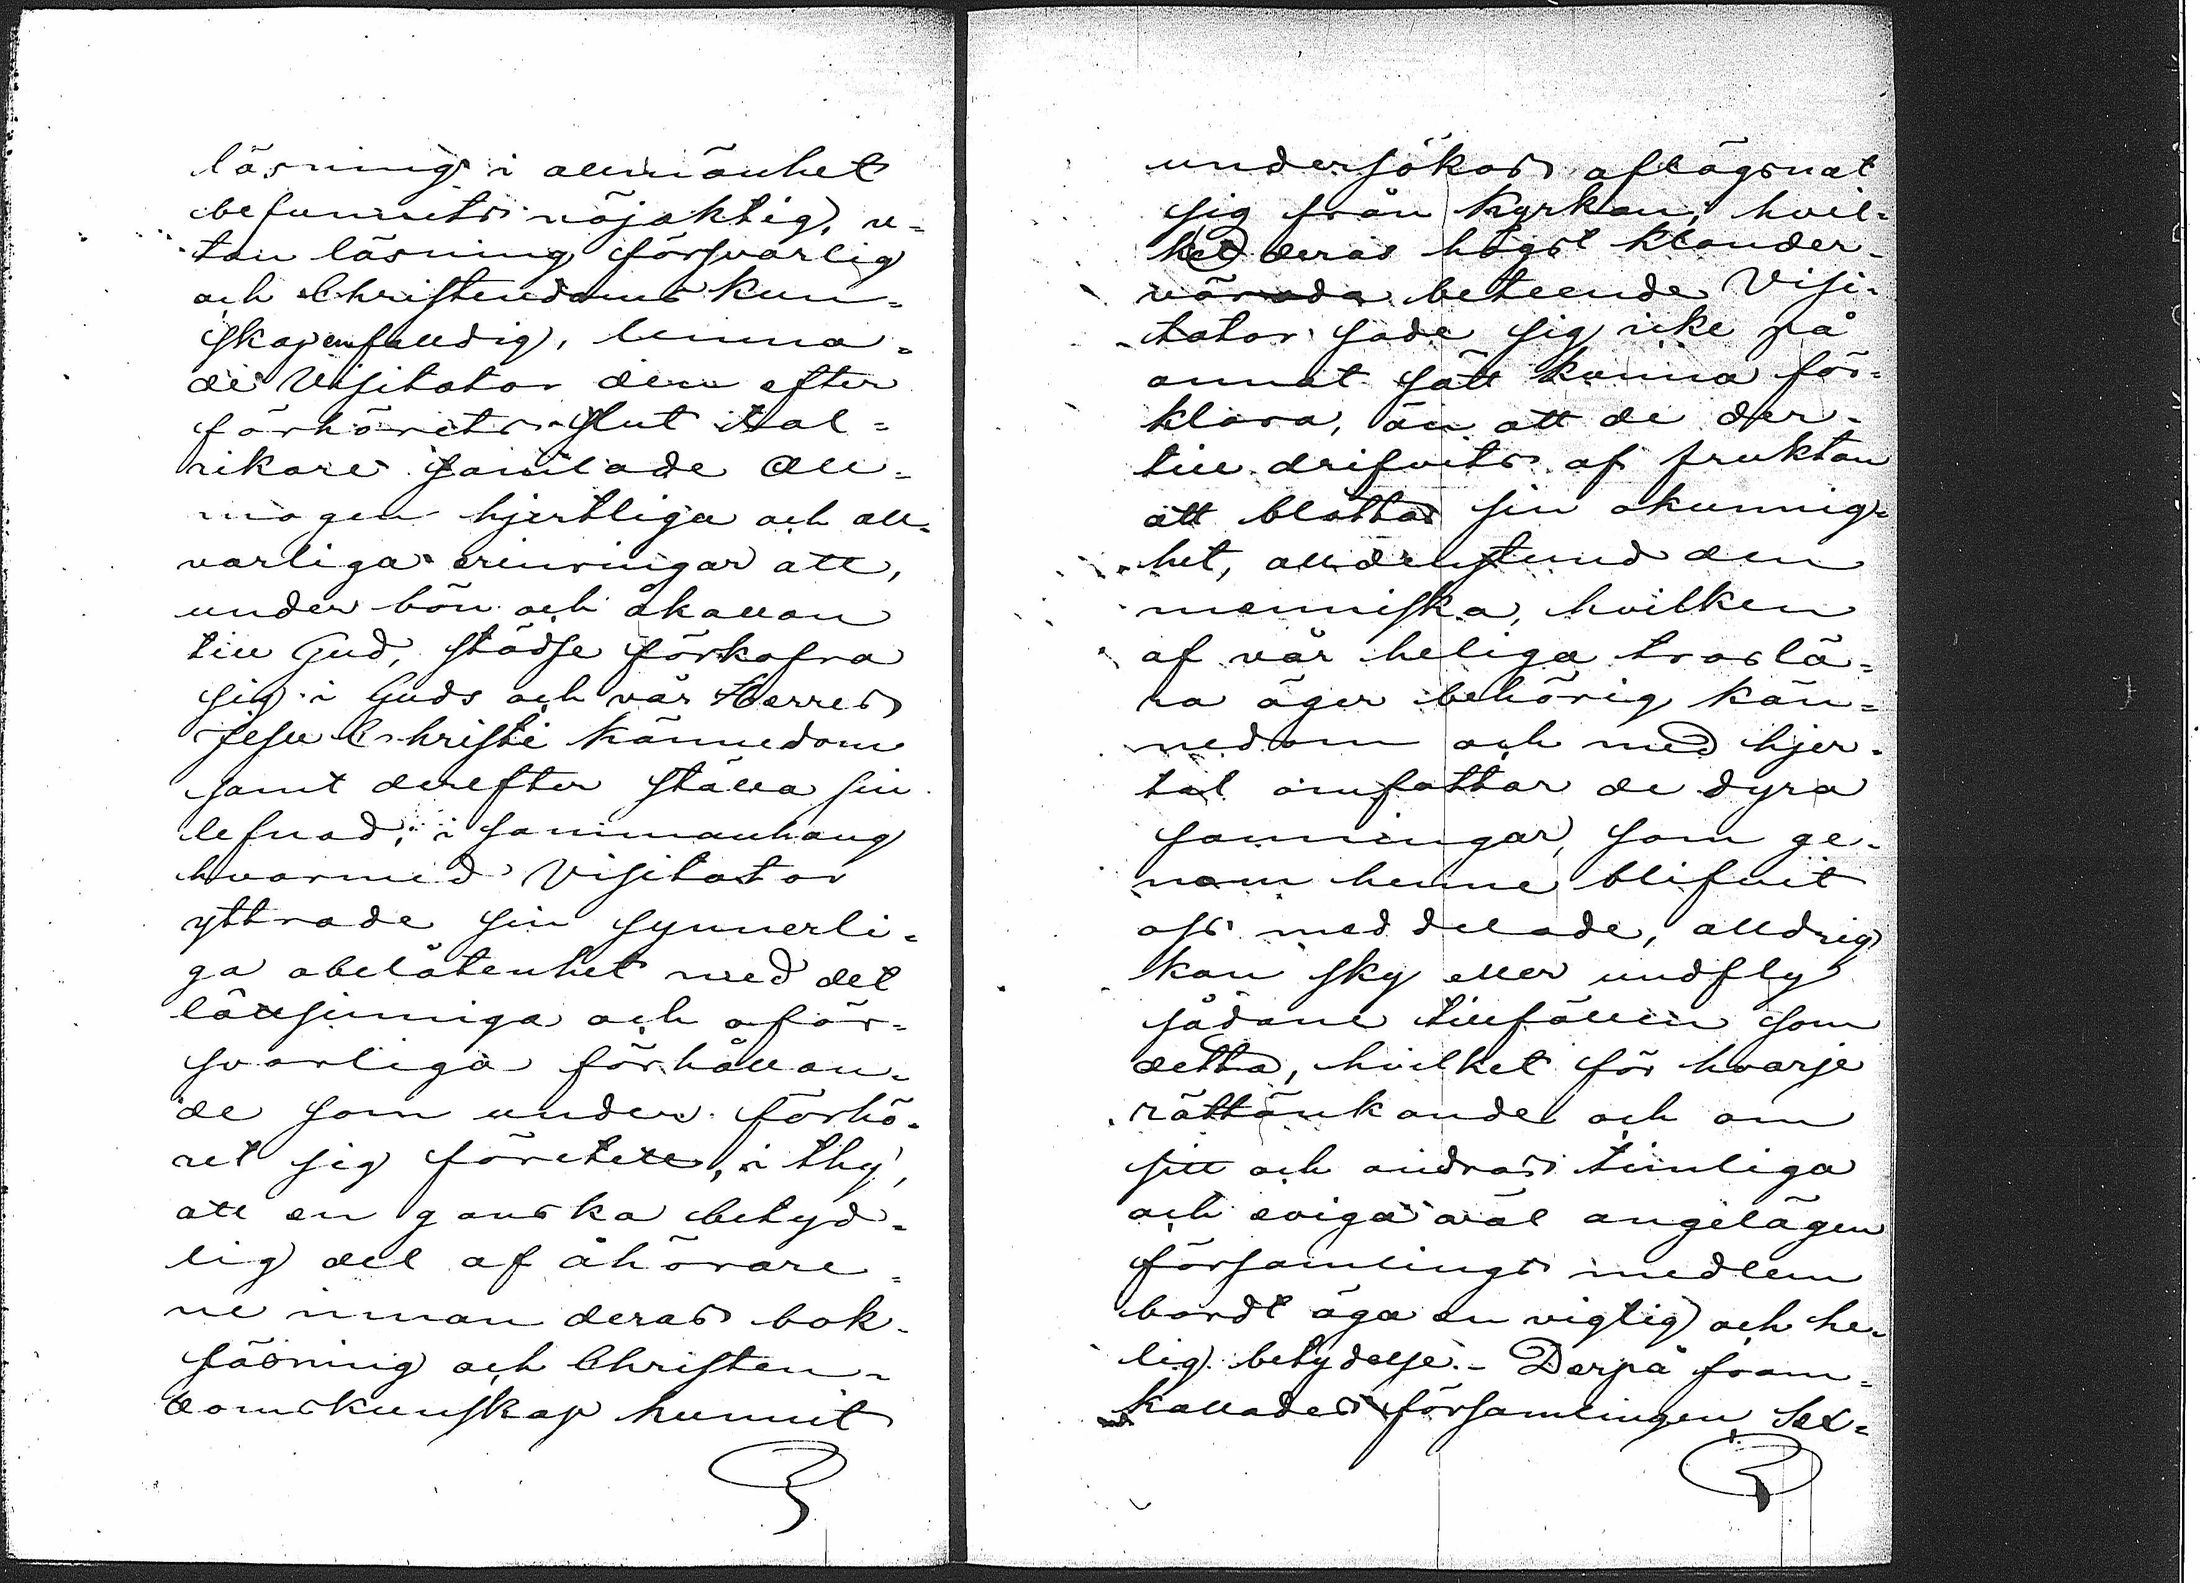 läsning i allmänhet
befunnits nöjaktig, u=
tan läsning försvarlig
och Christendoms kun=
skapen faudig, lemna=
de Visitator den efter
förhörets slut tal=
rikare samlade All=
mogen hjertliga och all=
varliga erinringar att,
under bön och åkallan
till Gud, städse förkofra
sig i Guds och vår Herres
Jesu Christi kännedom
samt derefter ställa sin
lefnad; i sammanhang
hvarmed Visitator
yttrade sin synnerli=
ga obelåtenhet med det
lättsinniga och oför=
svarliga förhållan=
de som under förhö=
ret sig företett, i thy,
att en ganska betyd=
lig del af åhörare=
ne innan deras bok=
läsning och Christen=
domskunskap hunnit
undersökas aflägsnat
sig från Kyrkan, hvil=
ket deras högst klander=
värda beteende Visi=
tator sade sig icke på
annat sätt kunna för=
klara, än att de der=
till drifvits af fruktan
att blottas sin okunnig=
het, alldenstund den
menniska, hvilken
af vår heliga troslä=
ra äger behörig kän=
nedom och med hjer=
tat omfattar de dyra
sanningar, som ge=
nom henne blifvit
oss meddelade, alldrig
kan sky eller undfly
sådane tillfällen som
detta, hvilket för hvarje
rättänkande och om
sitt och andras timliga
och eviga väl angelägen
församlings medlem
bordt äga en vigtig och he=
lig betydelse. - Derpå fram=
kallades församlingen Sex=